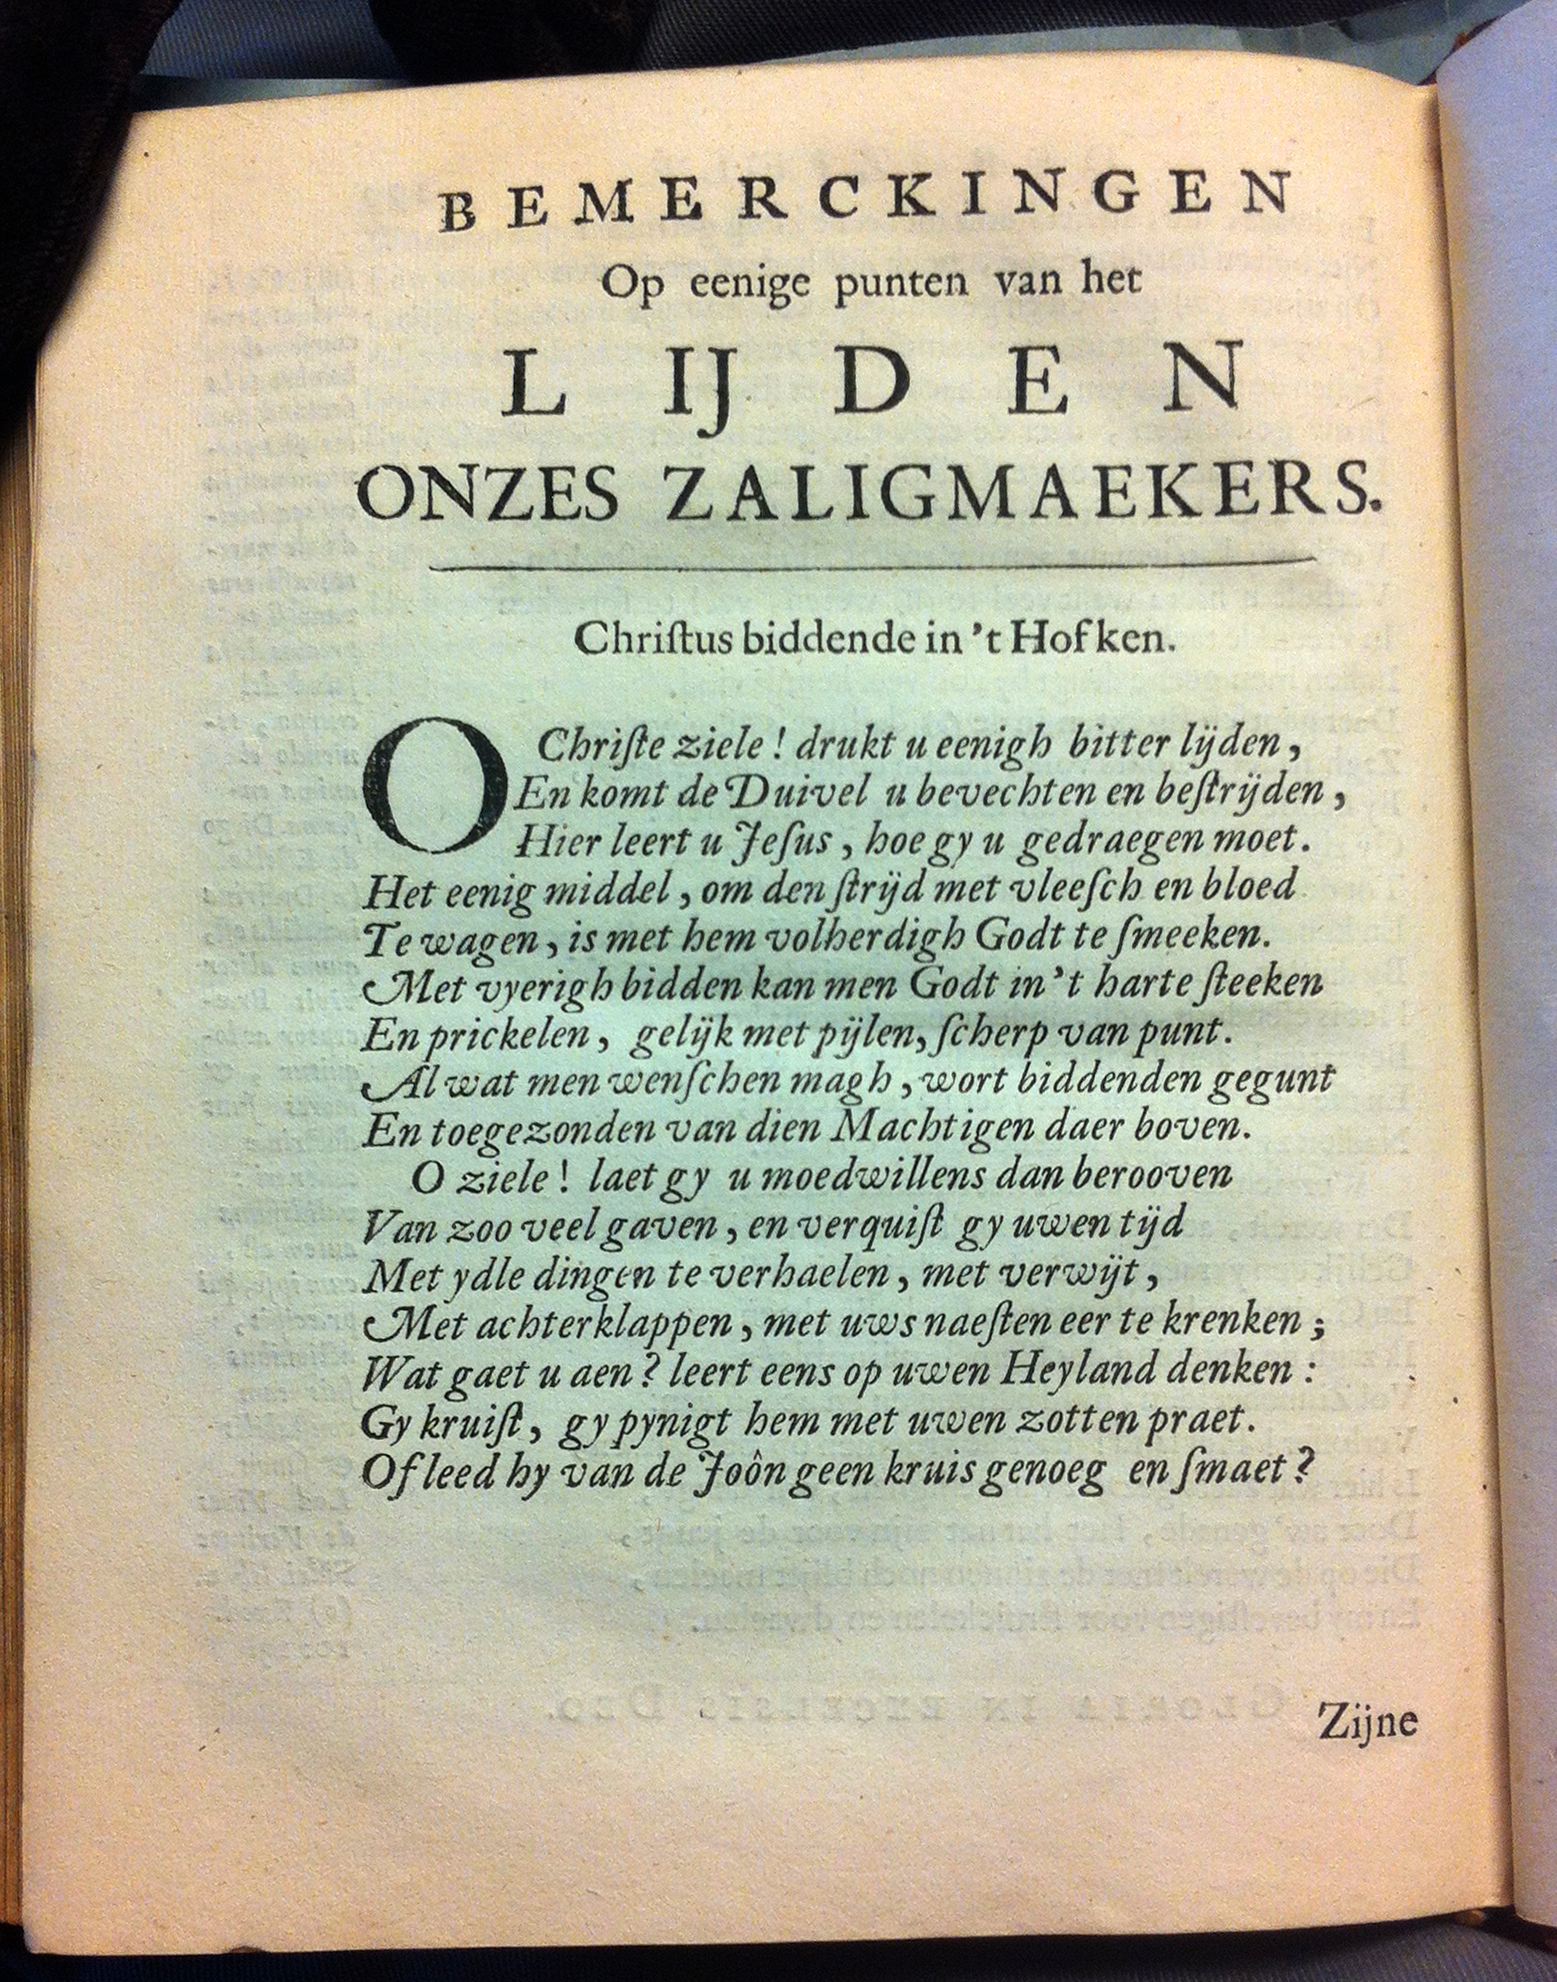 BEMERCKINGEN
Op eenige punten van het
LIJDEN
ONZES ZALIGMAEKERS.
Chriſtus biddende in 't Hofken.
O Chriſte ziele ! drukt u eenigh bitter lijden,
En komt de Duivel u bevechten en beſtrijden,
Hier leert u Jeſus, hoe gy u gedraegen moet.
Het eenig middel, om den ſtrijd met vleeſch en bloed
Te wagen, is met hem volherdigh Godt te ſmeeken.
Met vyerigh bidden kan men Godt in 't harte ſteeken
En prickelen, gelijk met pijlen, ſcherp van punt.
Al wat men wenſchen magh, wort biddenden gegunt
En toegezonden van dien Machtigen daer boven.
O ziele ! laet gy u moedwillens dan berooven
Van zoo veel gaven, en verquiſt gy uwen tijd
Met ydle dingen te verhaelen, met verwijt,
Met achterklappen, met uws naeſten eer te krenken ;
Wat gaet u aen ? leert eens op uwen Heyland denken :
Gy kruiſt, gy pynigt hem met uwen zotten praet.
Of leed hy van de Joôn geen kruis genoeg en ſmaet ?
GLORIA IN EXCELSIS DEO.
Zijne